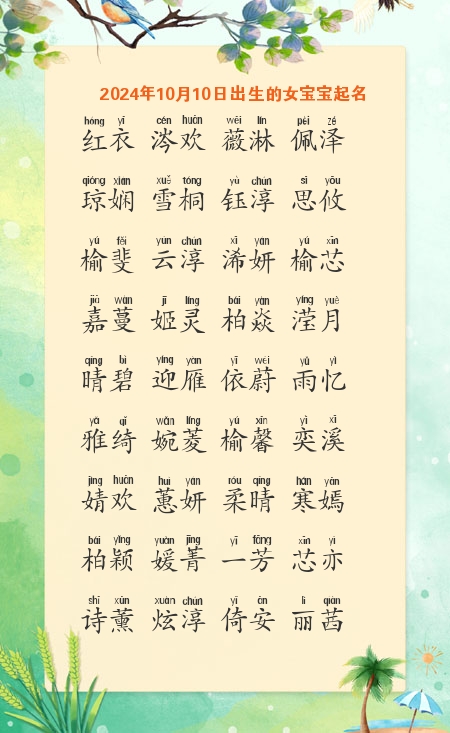 2024年10月10日出生的女宝宝起名
hóng yī cén huān wēi lín pèi zé
红衣 涔欢 薇淋 佩泽
qióng xián xuě tóng yù chún sī yōu
琼娴 雪桐 钰淳 思攸
yú fěi yún chún xī yán yú xīn
榆斐 云淳 浠妍 榆芯
jiā wàn jī líng bái yàn yíng yuè
嘉蔓 姬灵 柏焱 滢月
qíng bì yíng yàn yī wèi yǔ yì
晴碧 迎雁 依蔚 雨忆
yǎ qǐ wǎn líng yú xīn yì xī
雅绮 婉菱 榆馨 奕溪
jìng huān huì yán róu qíng hán yān
婧欢 蕙妍 柔晴 寒嫣
bái yǐng yuàn jīng yī fāng xīn yì
柏颖 媛菁 一芳 芯亦
shī xūn xuàn chún yǐ ān lì qiàn
诗薰 炫淳 倚安 丽茜